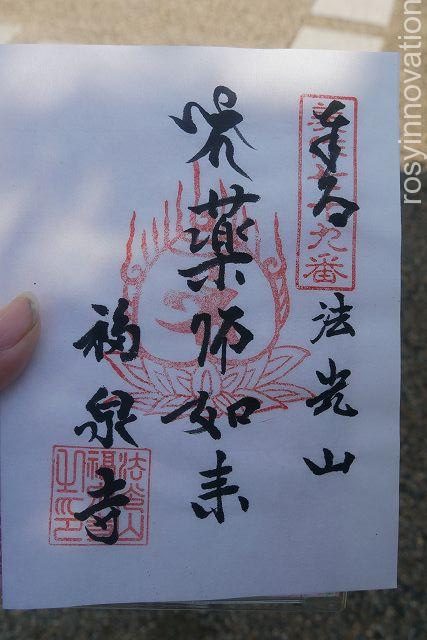 九番
法光山
薬師如来
福泉寺
法光山
之印
rosyinnovation